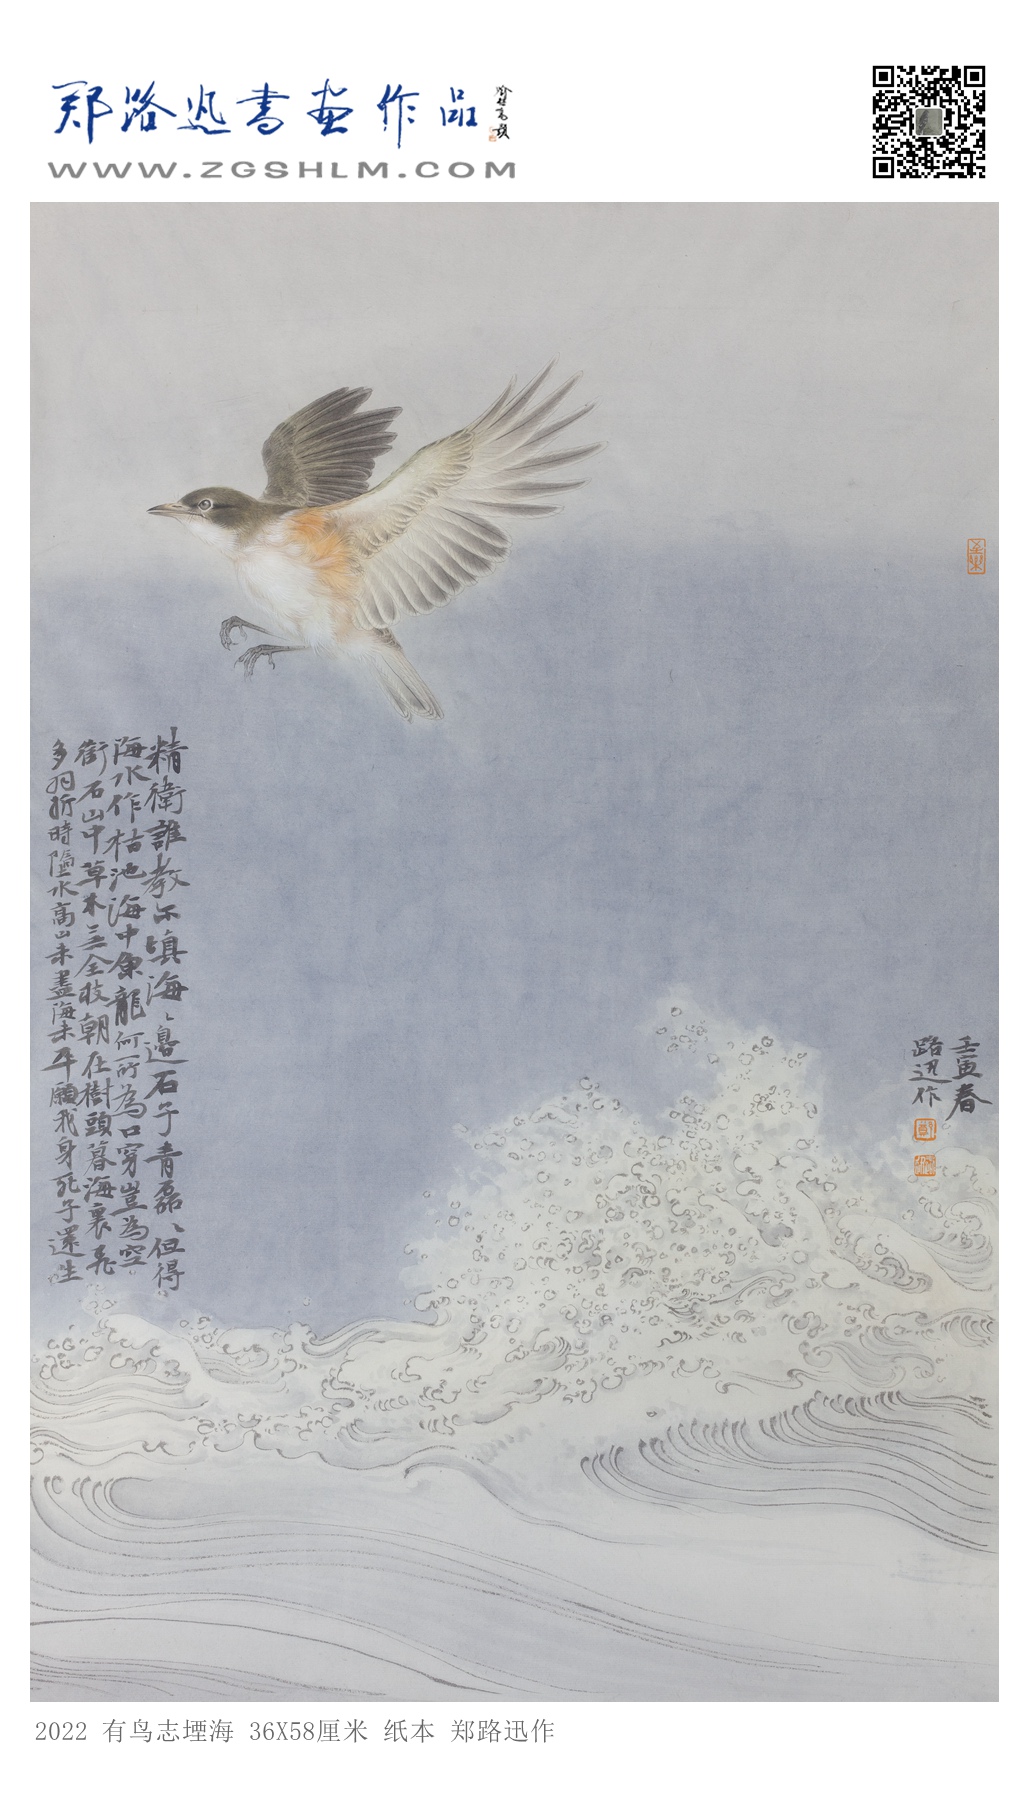 郑路迅書画作品
WWW.ZGSHLM.COM
精衛誰教尔填海〻邊石子青磊〻但得
海水作枯池海中魚龍何所為口穿豈為空
銜石山中草木無全枝朝在樹頭暮海裏飛
多羽折時墮水高山未盡海未平願我身死子還生
壬寅春
路迅作
2022 有鸟志堙海 36X58厘米 纸本 郑路迅作